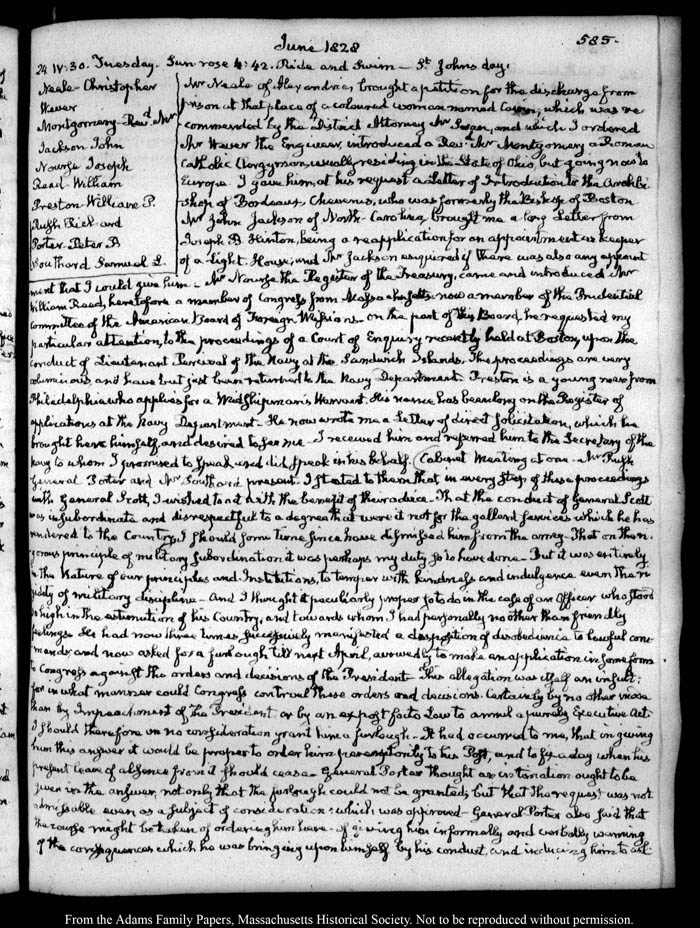 June 1828
585.
24 IV:30. Tuesday. Sun rose 4:42. Ride and Swim – St Johns day.
Neale – Christopher
Weaver
Montgomery – Revd Mr
Jackson John
Nourse Joseph
Read William
Preston William P.
Rush Richard
Porter Peter B
Southard Samuel L.
Mr Neale of Alexandria, brought a petition for the discharge from
prison at that place of a coloured woman named which was re
commended by the District Attorney Mr Swan, and which I ordered
Mr Weaver the Engraver, introduced a Revd Mr Montgomery a Roman
Catholic Clergyman, usually residing in the State of Ohio, but going now to
Europe. I gave him, at his request a Letter of Introduction to the Archbi
shop of Bordeaux, Cheverus, who was formerly the Bishop of Boston
Mr John Jackson of North-Carolina, brought me a long Letter from
Joseph B. Hinton, being a reapplication for an appointment as keeper
of a Light-House, and Mr Jackson enquired if there was also any appoint
ment that I could give him – Mr Nourse the Register of the Treasury, came and introduced Mr
William Reed, heretofore a member of Congress from Massachusetts, now a member of the Prudential
Committee of the American Board of Foreign Missions – on the part of this Board, he requested my
particular attention, to the proceedings of a Court of Enquiry recently held at Boston, upon the
conduct of Lieutenant Percival of the Navy at the Sandwich Islands. The proceedings are very
voluminous, and have but just been returned to the Navy Department. Preston is a young man from
Philadelphia who applies for a Midshipman's Warrant. His name has been long on the Register of
applications at the Navy Department – He now wrote me a Letter of direct solicitation, which he
brought here himself, and desired to see me – I received him and referred him to the Secretary of the
Navy to whom I promised to speak and did speak in his behalf. Cabinet Meeting at one – Mr Rush
General Porter and Mr Southard present. I stated to them that in every step of these proceedings
with General Scott, I wished to act with the benefit of their advice – That the conduct of General Scott
was insubordinate and disrespectful to a degree that were it not for the gallant services which he has
rendered to the Country, I should some time since have dismissed him from the army – That on the ri
gorous principle of military subordination it was perhaps my duty so to have done – But it was entirely
in the Nature of our principles and Institutions, to temper with kindness and indulgence even the ri
gidity of military discipline – And I thought it peculiarly proper so to do in the case of an Officer who stood
so high in the estimation of his Country, and towards whom I had personally no other than friendly
feelings. He had now three times successively manifested a disposition of disobedience to lawful com
mands, and now asked for a furlough till next April, avowedly to make an application in some form
to Congress against the orders and decisions of the President – This allegation was itself an insult;
for in what manner could Congress controul these orders and decisions. Certainly by no other mode
than by Impeachment of the President, or by an expost facto Law to annul a purely Executive Act.
I should therefore on no consideration grant him a furlough – It had occurred to me, that in giving
him this answer it would be proper to order him peremptorily to his Post, and to fix a day when his
present leave of absence from it should cease – General Porter thought an intimation ought to be
given in the answer, not only that the furlough could not be granted, but that the request was not
admissable even as a subject of consideration: which was approved – General Porter also said that
the course might be taken of ordering him here – of giving him informally and verbally warning
of the consequences which he was bringing upon himself by his conduct, and inducing him to ask
From the Adams Family Papers, Massachusetts Historical Society. Not to be reproduced without permission.